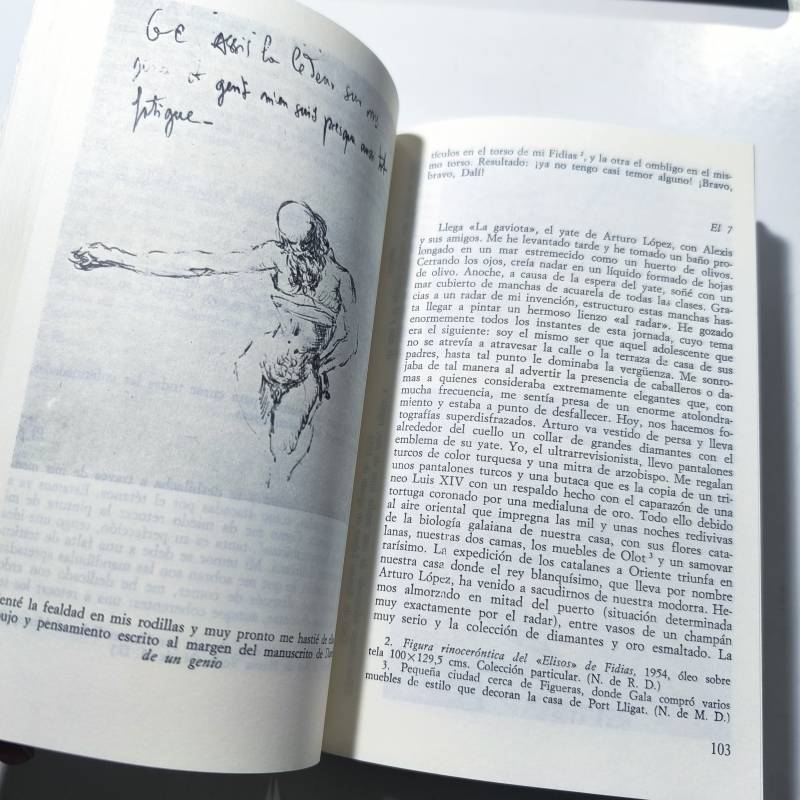 Ge
la
sur mes
et gens m'en suis presque
fatigue.
enté la fealdad en mis rodillas y muy pronto me hastié de
ujo y pensamiento escrito al margen del manuscrito de
de un genio
tículos en el torso de mi Fidias ², y la otra el ombligo en el mis-
mo torso. Resultado: ¡ya no tengo casi temor alguno! ¡Bravo,
bravo, Dalí!
El 7
Llega «La gaviota», el yate de Arturo López, con Alexis
y sus amigos. Me he levantado tarde y he tomado un baño pro-
longado en un mar estremecido como un huerto de olivos.
Cerrando los ojos, creía nadar en un líquido formado de hojas
de olivo. Anoche, a causa de la espera del yate, soñé con un
mar cubierto de manchas de acuarela de todas las clases. Gra-
cias a un radar de mi invención, estructuro estas manchas has-
ta llegar a pintar un hermoso lienzo «al radar». He gozado
enormemente todos los instantes de esta jornada, cuyo tema
era el siguiente: soy el mismo ser que aquel adolescente que
no se atrevía a atravesar la calle o la terraza de casa de sus
padres, hasta tal punto le dominaba la vergüenza. Me sonro-
jaba de tal manera al advertir la presencia de caballeros o da-
mas a quienes consideraba extremamente elegantes que, con
mucha frecuencia, me sentía presa de un enorme atolondra-
miento y estaba a punto de desfallecer. Hoy, nos hacemos fo-
tografías superdisfrazados. Arturo va vestido de persa y lleva
alrededor del cuello un collar de grandes diamantes con el
emblema de su yate. Yo, el ultrarrevisionista, llevo pantalones
turcos de color turquesa y una mitra de arzobispo. Me regalan
unos pantalones turcos y una butaca que es la copia de un tri-
neo Luis XIV con un respaldo hecho con el caparazón de una
tortuga coronado por una medialuna de oro. Todo ello debido
al aire oriental que impregna las mil y unas noches redivivas
de la biología galaiana de nuestra casa, con sus flores cata-
lanas, nuestras dos camas, los muebles de Olot ³ y un samovar
rarísimo. La expedición de los catalanes a Oriente triunfa en
nuestra casa donde el rey blanquísimo, que lleva por nombre
Arturo López, ha venido a sacudirnos de nuestra modorra. He-
mos almorzado en mitad del puerto (situación determinada
muy exactamente por el radar), entre vasos de un champán
muy serio y la colección de diamantes y oro esmaltado. La
2. Figura rinoceróntica del «Elisos» de Fidias, 1954, óleo sobre
tela 100×129,5 cms. Colección particular. (N. de R. D.)
3. Pequeña ciudad cerca de Figueras, donde Gala compró varios
muebles de estilo que decoran la casa de Port Lligat. (N. de M. D.)
103